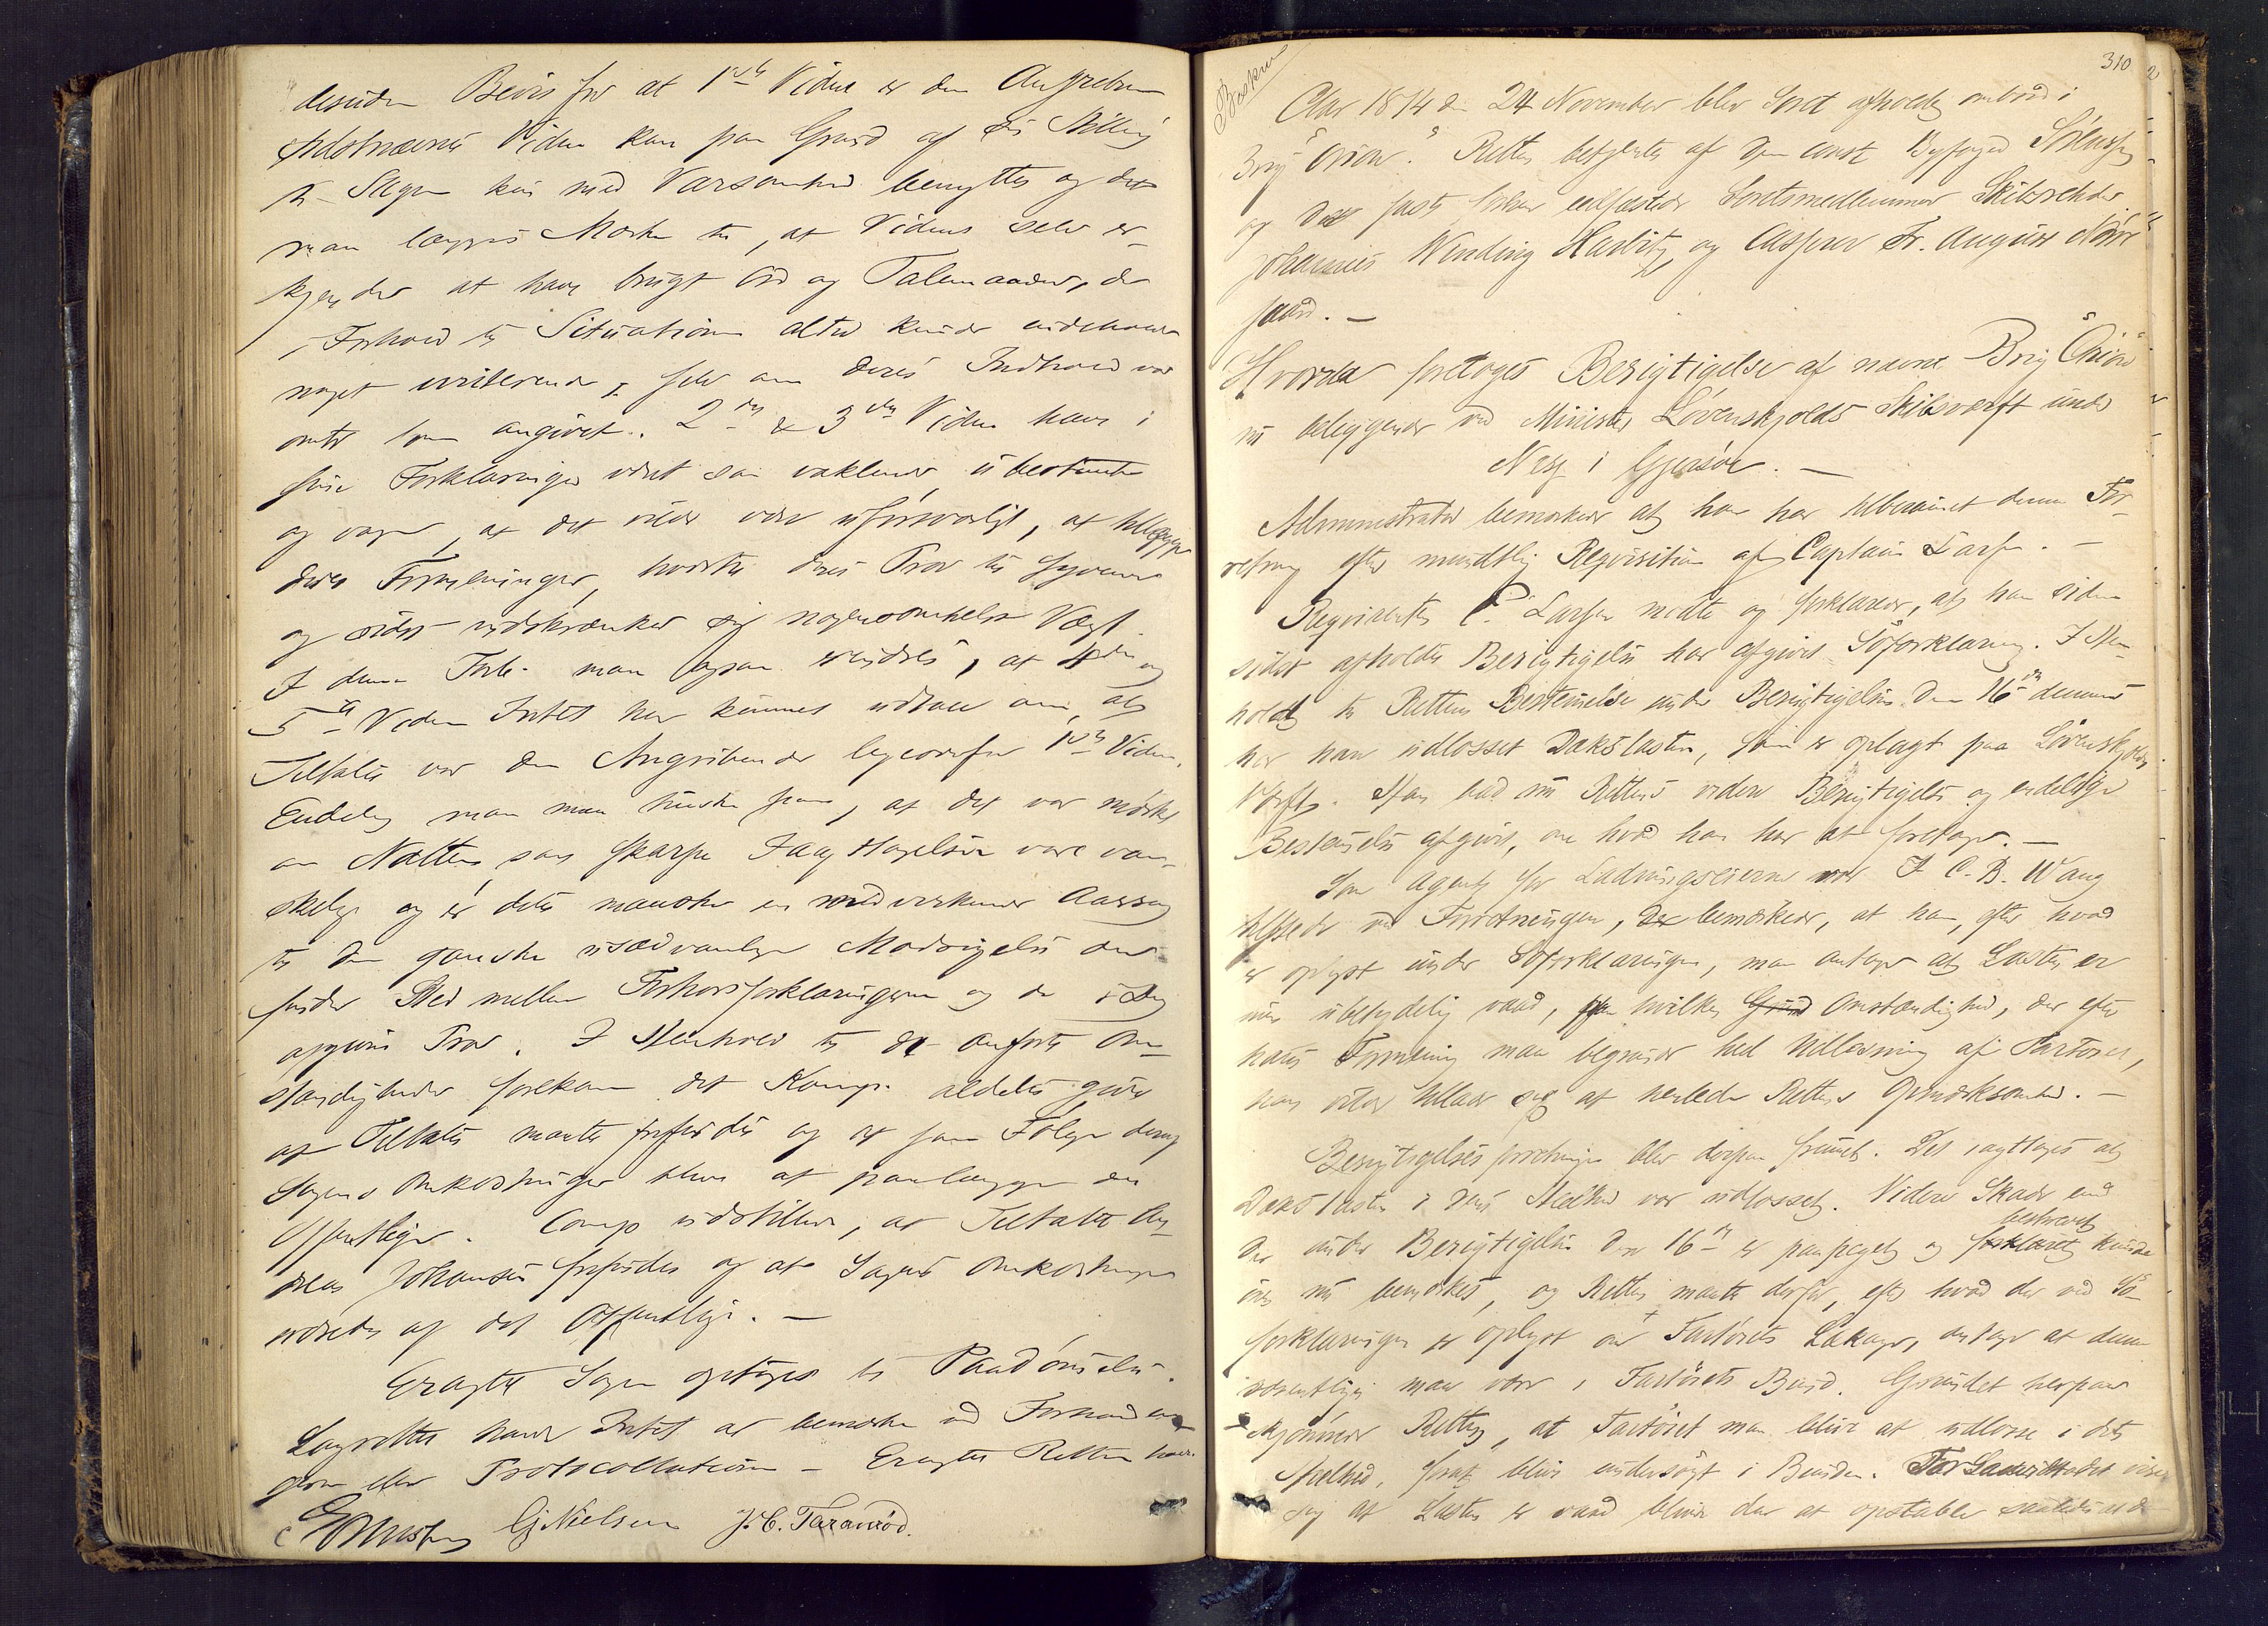 desuden Bevis for at 1ste Vidne er den Angrebne
Sidstnævnte Viden kan paa Grund af sin Stilling
til Sagen kun med Varsomhed benyttes og der
maa lægges Mærke til, at Vidnet selv er-
kjender at have brugt Ord og Talemaader, der
i Forhold til Situationen altid kunde indeholde
noget irriterende, selv om deres Indhold var
som angivet. 2det & 3die Vidne have i
sine Forklaringer været saa vaklende, ubestemte
og vage, at det vilde være uforsvarligt, at tillægge
deres Forklaringer, hvortil deres Prov til Syvende
og sidst indskrænker sig nogensomhelst Vægt.
I denne Forb. maa ogsaa erindres, at 4de og
5te Vidne Intet har kunnet udtale om, at
Tiltalte var den Angribende ligeoverfor 1ste Vidne.
Endelig maa man huske paa, at det var mørkt
om Natten, saa skarpe Iagttagelser vare van-
skelige og er dette maaske en medvirkende Aarsag
til den ganske usædvanlige Modsigelse der
finder Sted mellem Forhørsforklaringerne og de i Dag
afgivne Prov. I Henhold til de anførte Om-
stændigheder forekom det Komp. aldeles givet
at Tiltalte maatte frifindes og at som Følge deraf
Sagens Omkostninger blive at paalægge det
Offentlige. Comp indstillede, at Tiltalte An-
dreas Johansen frifindes og at Sagens Omkostninger
udredes af det Offentlige. —
Eragtet Sagen optages til Paadømmelse.
Lagrettet havde Intet at bemærke ved Forhandlin-
gen eller Protocollationen — Eragtet Retten hævet.
G. Nielsen J. C. Taranrød.
Beskrevet
310
Aar 1874 d. 24 November blev Soret afholdt ombord i
Brig "Orion". Retten betjentes af den const Byfoged Sørensen
og det faste beskikkede edfæstede Soretsmedlemmer Skibsreder
Johannes Wending Hasbitz og Casper Fr. August Nør-
gaard. —
Hvorda foretoges Besigtigelse af nævnte Brig "Orion"
nu beliggende ved Minister Løvenskjolds Skibsværft under
Næs i Gjersøe. —
Administrator bemærkede at han har tilberammet denne For-
retning efter mundtlig Reqvisition af Captain Larsen. —
Reqvirenten C. Larsen mødte og forklarede, at han siden
sidst afholdte Besigtigelse har afgivet Søforklaring. I Hen-
hold til Rettens Bestemmelse under Besigtigelsen den 16de dennes
har han udlosset Dækslasten, som er oplagt paa Løvenskjolds
Værft. Han bad nu Rettens videre Besigtigelse og endelige
Bestemmelse afgivet, om hvad han har at foretage. —
Som Agent for Ladningseierne var J. C. B. Wang
tilstede ved Forretningen, der bemærkede, at han, efter hvad
er oplyst under Søforklaringen, maa antage at Lasten er
ubetydelig vaad, paa hvilken Omstændighed, der efter
hans Formening maa begrunde hel Udlosning af Fartøiet,
han vilde tillade sig at henlede Rettens Opmærksomhed. —
Besigtigelsesforretningen blev derpaa fremmet. Det iagttoges at
Dækslasten i dens Helhed var udlosset. Videre Skade end
beskrevet
der under Besigtigelsen den 16de er paapeget og forklaret kunde
ikke nu bemærkes, og Retten maatte derfor, efter hvad der ved Sø-
forklaringen er oplyst om Fartøiets Lækage, antage at denne
væsentligst maa være i Fartøiets Bund. Grundet herpaa
skjønnede Retten, at Fartøiet maa blive at udlosse i dets
Helhed, forat blive undersøgt i Bunden. Forsaavidt det viser
sig at Lasten er vaad bliver den at opstable saaledes at d